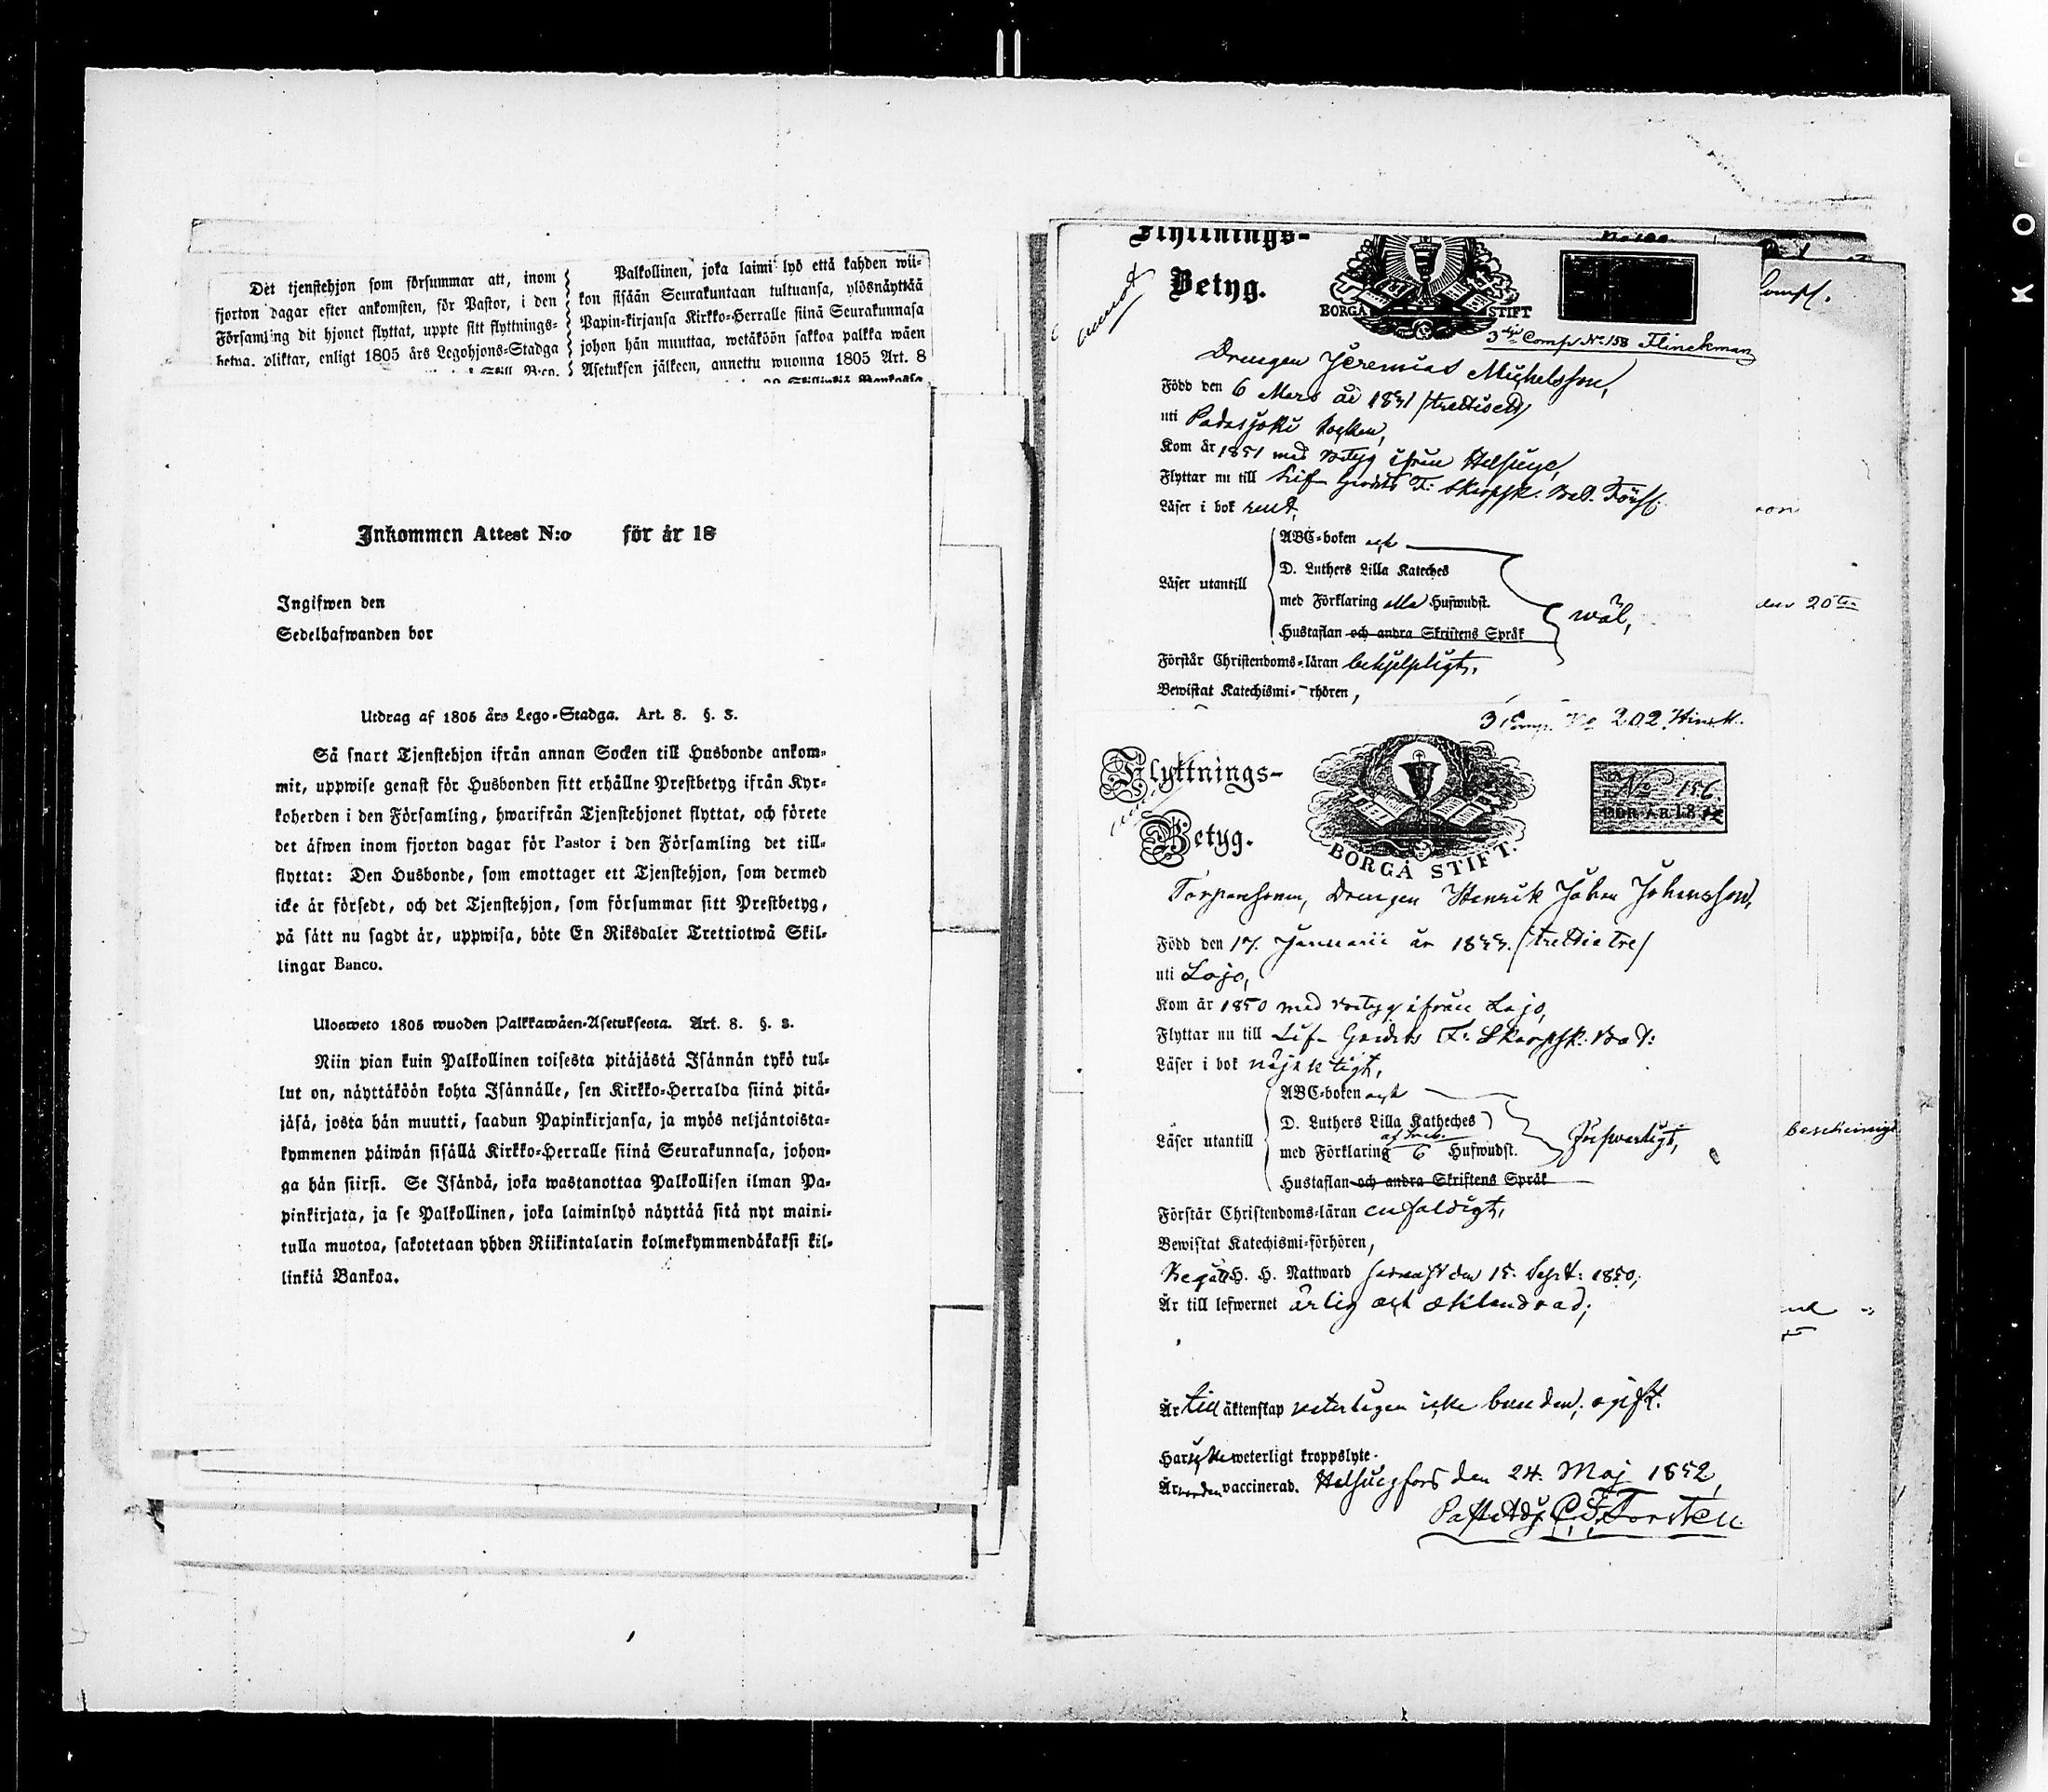 Det tjenstehjon som försummar att, inom
fjorton dagar efter ankomsten, för Pastor, i den
Församling dit hjonet flyttat, uppte sitt flyttnings-
betyg, pliktar, enligt 1805 års Legohjons-Stadga
Palkollinen, joka laimi lyö että kahden wii-
kon sisään Seurakuntaan tultuansa, ylösnäyttää
Papin-kirjansa Kirkko-Herralle siinä Seurakunnasa
johon hän muuttaa, wetäköön sakkoa palkka wäen
Asetuksen jälkeen, annettu wuonna 1805 Art. 8
Inkommen Attest N:o för år 18
Ingifwen den
Sedelhafwanden bor
Utdrag af 1805 års Lego-Stadga. Art. 8. §. 3.
Så snart Tjenstehjon ifrån annan Socken till Husbonde ankom-
mit, uppwise genast för Husbonden sitt erhållne Prestbetyg ifrån Kyr-
koherden i den Församling, hwarifrån Tjenstehjonet flyttat, och förete
det äfwen inom fjorton dagar för Pastor i den Församling det till-
flyttat: Den Husbonde, som emottager ett Tjenstehjon, som dermed
icke är försedt, och det Tjenstehjon, som försummar sitt Prestbetyg,
på sätt nu sagdt är, uppwisa, böte En Riksdaler Trettiotwå Skil-
lingar Banco.
Ulosweto 1805 wuoden Palkkawäen-Asetuksesta. Art. 8. §. 3.
Niin pian kuin Palkollinen toisesta pitäjästä Isännän tykö tul-
lut on, näyttäköön kohta Isännälle, sen Kirkko-Herralda siinä pitä-
jäsä, josta hän muutti, saadun Papinkirjansa, ja myös neljäntoista-
kymmenen päiwän sisällä Kirkko-Herralle siinä Seurakunnasa, johon-
ga hän siirsi. Se Isändä, joka wastanottaa Palkollisen ilman Pa-
pinkirjata, ja se Palkollinen, joka laiminlyö näyttää sitä nyt maini-
tulla muotoa, sakotetaan yhden Riikintalarin kolmekymmendäkaksi kil-
linkiä Bankoa.
Flyttnings-
Betyg.
BORGÅ STIFT
3die Comp No 158 Flinckman
Drengen Jeremias Michelsson,
Född den 6 Mars år 1831 (trettioett)
uti Padasjoki socken,
Kom år 1851 med betyg ifrån Helsinge,
Flyttar nu till Lif-Gardets F: Skarpsk. Bat. Förs:
Läser i bok rent,
Läser utantill
ABC-boken och
D. Luthers Lilla Kateches
med Förklaring alla Hufwudst.
Hustaflan och andra Skriftens Språk
wäl,
Förstår Christendoms-läran behjelpligt,
Bewistat Katechismi-rhören,
Comp.
den 20de
3 Comp. No 202. Hinrk.
Flyttnings-
Betyg.
BORGÅ STIFT.
No 156
FÖR ÅR 1852
Torparesonen, Drengen Henrik Johan Johansson,
Född den 17. Januarii år 1833. (trettiotre)
uti Lojo,
Kom år 1850 med betyg ifrån Lojo,
Flyttar nu till Lif-Gardets F: Skarpsk: Bat:
Läser i bok nöjaktigt,
Läser utantill
ABC-boken och
D. Luthers Lilla Katheches
med Förklaring 6 Hufwudst.
Hustaflan och andra Skriftens Språk
Förswarligt,
Förstår Christendoms-läran enfaldigt,
Bewistat Katechismi-förhören,
Begått H. H. Nattward sednast den 15. Sept: 1850;
Är till lefwernet ärlig och oklandrad;
Är till äktenskap veterligen icke bunden; ogift.
Har icke weterligt kroppslyte.
Är worden vaccinerad. Helsingfors den 24. Maj 1852,
Past: Adj: C. F. Forstén
bescheinigt
KOD